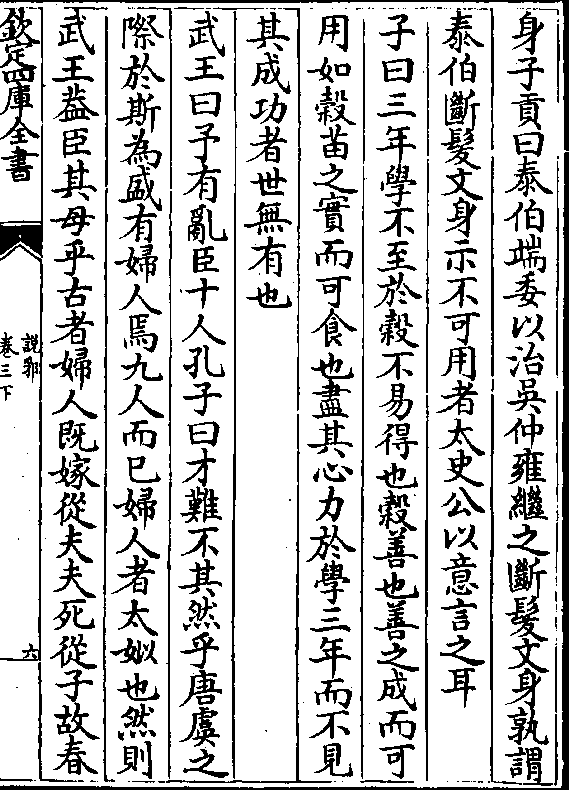 身子貢曰泰伯端委以治吳仲雍繼之斷髮文身孰謂
泰伯斷髮文身示不可用者太史公以意言之耳
子曰三年學不至於穀不易得也穀善也善之成而可
用如穀苗之實而可食也盡其心力於學三年而不見
其成功者世無有也
武王曰予有亂臣十人孔子曰才難不其然乎唐虞之
際於斯為盛有婦人焉九人而已婦人者太姒也然則
武王葢臣其母乎古者婦人既嫁從夫夫死從子故春
欽定四庫全書
說郛
卷三下
六